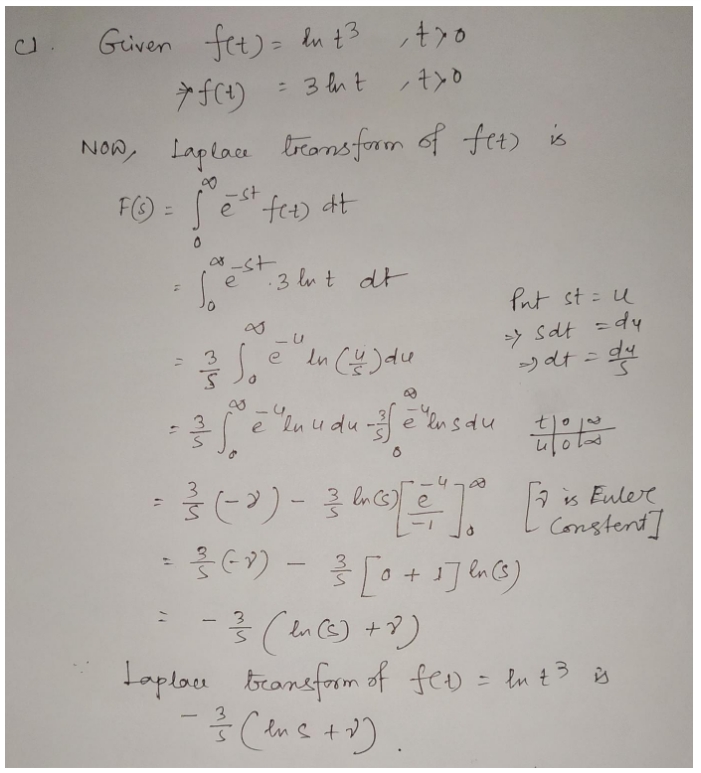 c). Given f(t) = ln t³ , t>0
⇒ f(t) = 3 ln t , t>0
Now, Laplace transform of f(t) is
F(s) = ∫₀^∞ e^{-st} f(t) dt
= ∫₀^∞ e^{-st} . 3 ln t dt
Put st = u
⇒ sdt = du
⇒ dt = du/s
= 3/s ∫₀^∞ e^{-u} ln(u/s) du
= 3/s ∫₀^∞ e^{-u} ln u du - 3/s ∫₀^∞ e^{-u} ln s du
t | 0 | ∞
u | 0 | ∞
= 3/s (-γ) - 3/s ln(s) [e^{-u}/-1]₀^∞ [γ is Euler
Constent]
= 3/s (-γ) - 3/s [0 + 1] ln(s)
= - 3/s (ln(s) + γ)
Laplace transform of f(t) = ln t³ is
- 3/s (ln s + γ).